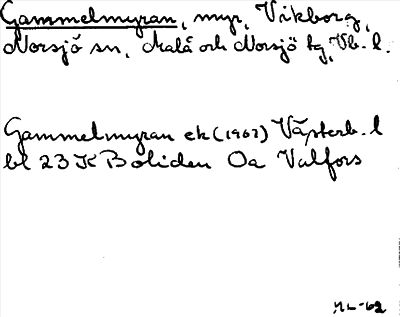 Gammelmyran, myr, Vikborg,
Norsjö sn, Malå och Norsjö tg, Vb. l.
Gammelmyran ek (1967) Västerb. l
bl 23 K Boliden Oa Valfors
ML-62